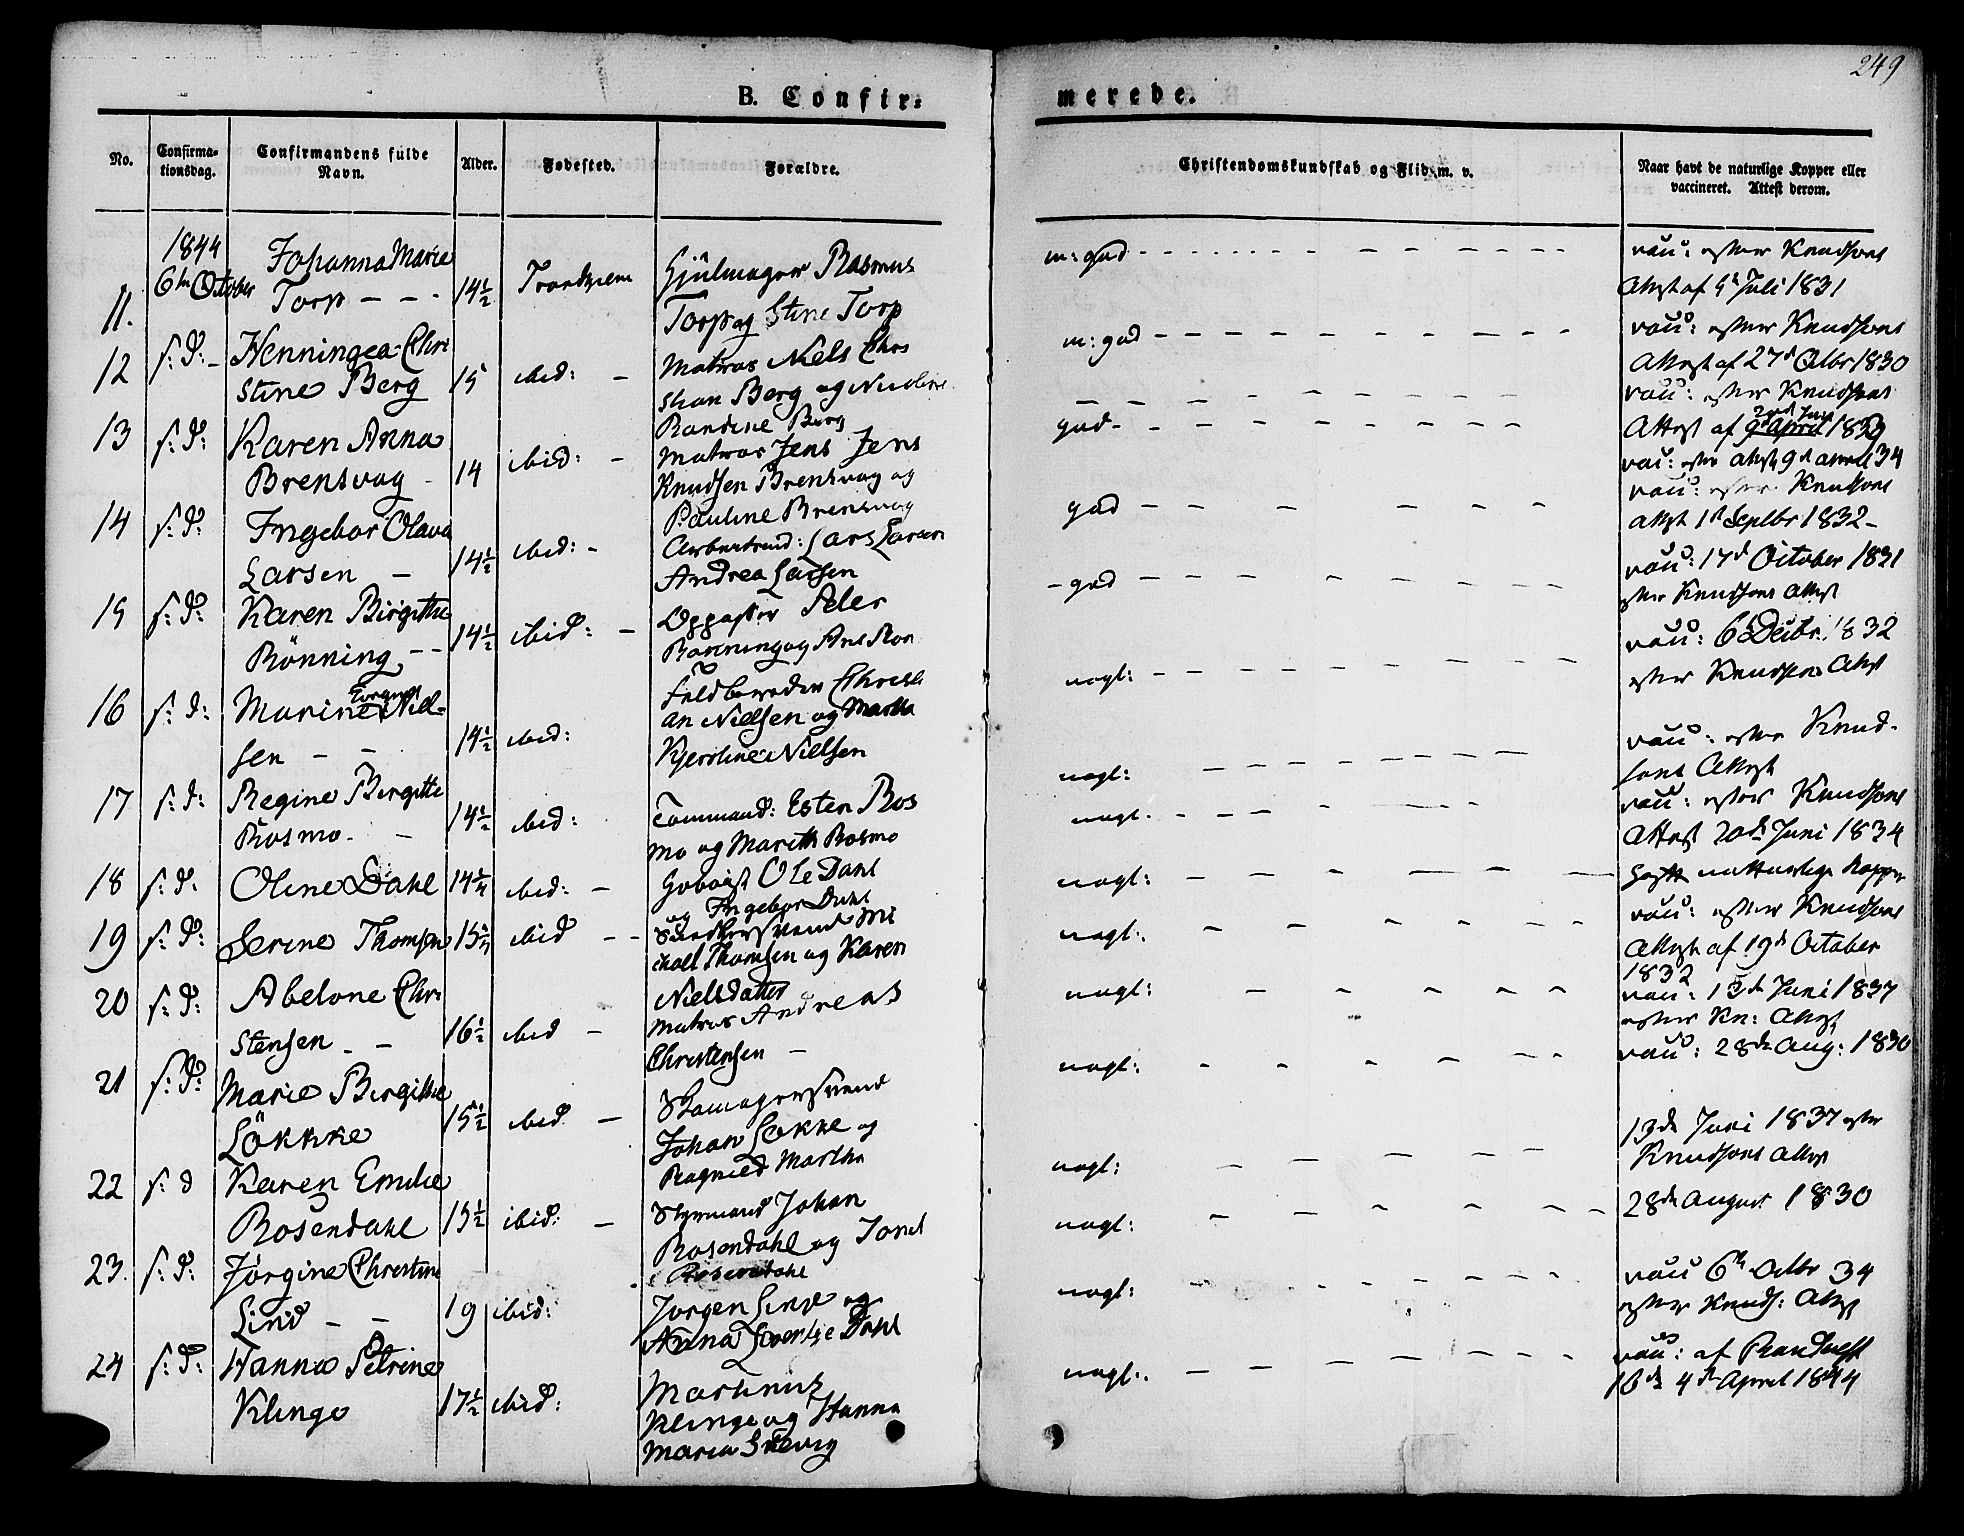 249
B. Confir=
merede.
No.
Confirma-
tionsdag.
Confirmandens fulde
Navn.
Alder.
Fødested.
Forældre.
Christendomskundskab og Flid m. v.
Naar havt de naturlige Kopper eller
vaccineret. Attest derom.
1844
6te October
11.
Johanna Marie
Torp - - -
14½
Trondhjem
Hjulmager Rasmus
Torp og Stine Torp
m: god
vacc: efter Knudsons
Attest af Juli 1831
12
s: d: -
Henningea Chri
stine Berg
15
ibid: -
Matros Niels Chri
stian Berg og
Randine Berg
m: god
vacc: efter Knudsons
Attest af 27d Octbr 1830
13
s: d:
Karen Anna
Brensvag -
14
ibid: -
Matros Jens Jens
Knudsen Brensvag og
Pauline Brensvag
god
vacc: efter Knudsons
Attest af 1830
vac: efter Attest 9d April 34
14
s: d:
Ingebor Olava
Larsen -
14½
ibid: -
Arbeidsmd: Lars Larsen
Andrea Larsen
god
vacc: efter Knudsons
Attest 1st Septbr 1832 -
15
s: d:
Karen Birgitte
Rönning - -
14½
ibid: -
Oppasser Peder
god
vacc: 17d October 1831
efter Knudsons Attest
16
s: d:
Marine Niel=
sen - -
14½
ibid:
Feldbereder Christi
an Nielsen og Martha
Kjerstine Nielsen
nogl:
vacc: 6 Decbr. 1832
efter Knudsons Attest
17
s: d:
Regine Birgitte
Rosmo. -
14½
ibid:
Tommand: Esten Ros
mo og Marith Rosmo
nogl:
vacc: efter Knud-
sons Attest
nogl.
vacc: efter Knudsons
Attest 20de Juni 1834
18
s: d:
Oline Dahl
14¼
ibid: -
Ole Dahl
og Ingebor Dahl
nogl:
havt naturlige Kopper
19
s: d:
Serine Thomsen
ibid - -
Mi
chael Thomsen og Karen
Nielsdatter
nogl:
vacc: efter Knudsons
Attest af 19d October
1832
20
s: d:
Abelone Chri
stensen - -
16½
ibid -
Matros Andreas
Christensen -
nogl:
vacc: 13de Juni 1837
efter Kn: Attest
21
s: d:
Marie Birgitte
Lökkke
15½
ibid -
Skomagersvend
Johan Løkke og
Ragnild Martha
nogl:
vacc: 28de Aug: 1830
13de Juni 1837 efter
Knudsons Attest
22
s: d
Karen Emilie
Rosendahl
15½
ibid: -
Styrmand Johan
Rosendahl og
Rosendahl
nogl:
28de August 1830
23.
s: d:
Jörgine Christine
Lind - -
19
ibid:
Jorgen Lind og
Anna Dahl
nogl:
vacc 6te Octbr 34
efter Knuds: Attest
24
s: d:
Hanna Petrine
Klinge
17½
ibid:
Martinus
Klinge og Hanna
Maria
nogl:
nogl:.
vacc: af
4de April 1844